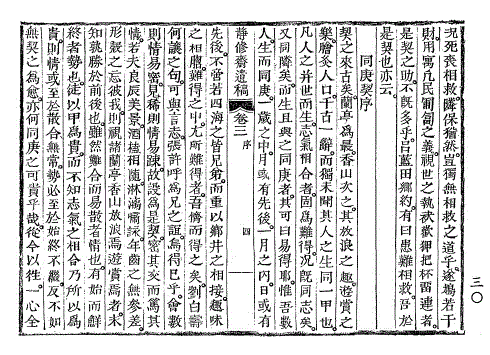 況死喪相救隣保猶然豈獨無相救之道乎遂揚若干
財用寓凡民匍匐之義視世之執歡狎把杯留連者
是契之助不旣多乎呂藍田鄕約有曰患難相救吾於
是契也亦云
同庚契序
契之來古矣蘭亭爲最香山次之其放浪之趣遊賞之
樂膾炙人口千古一辭而獨未聞其人之生同一甲也
凡人之並世而生志氣相合者固爲難得況旣同志矣
又同隣矣而生且與之同庚者其可曰易得耶惟吾數
人生而同庚一歲之中月或有先後一月之內日或有
靜修齋遺稿 卷三 序 四
先後不啻若四海之皆兄弟而重以鄕井之相接趣味
之相難得之中尤所難得者吾儕而得之矣劉白壽
何議之句可與言志張許呼爲兄之誼焉得已乎會數
則情易密見稀則情易踈故設爲是契其而篤其
情若夫良辰美景酒榼相隨淋漓嘯詠年齒之無參差
形骸之忘彼我則視諸蘭亭香山放浪焉遊賞焉者未
知孰勝於前後也雖然難合而易散者情也有始而鮮
終者勢也徒以甲爲貴而不知志氣之相合乃所以爲
貴則情或至於散合無常勢必至於始終不繼反不如
無契之爲愈亦何同庚之可貴乎哉從今以徃一心全
三〇